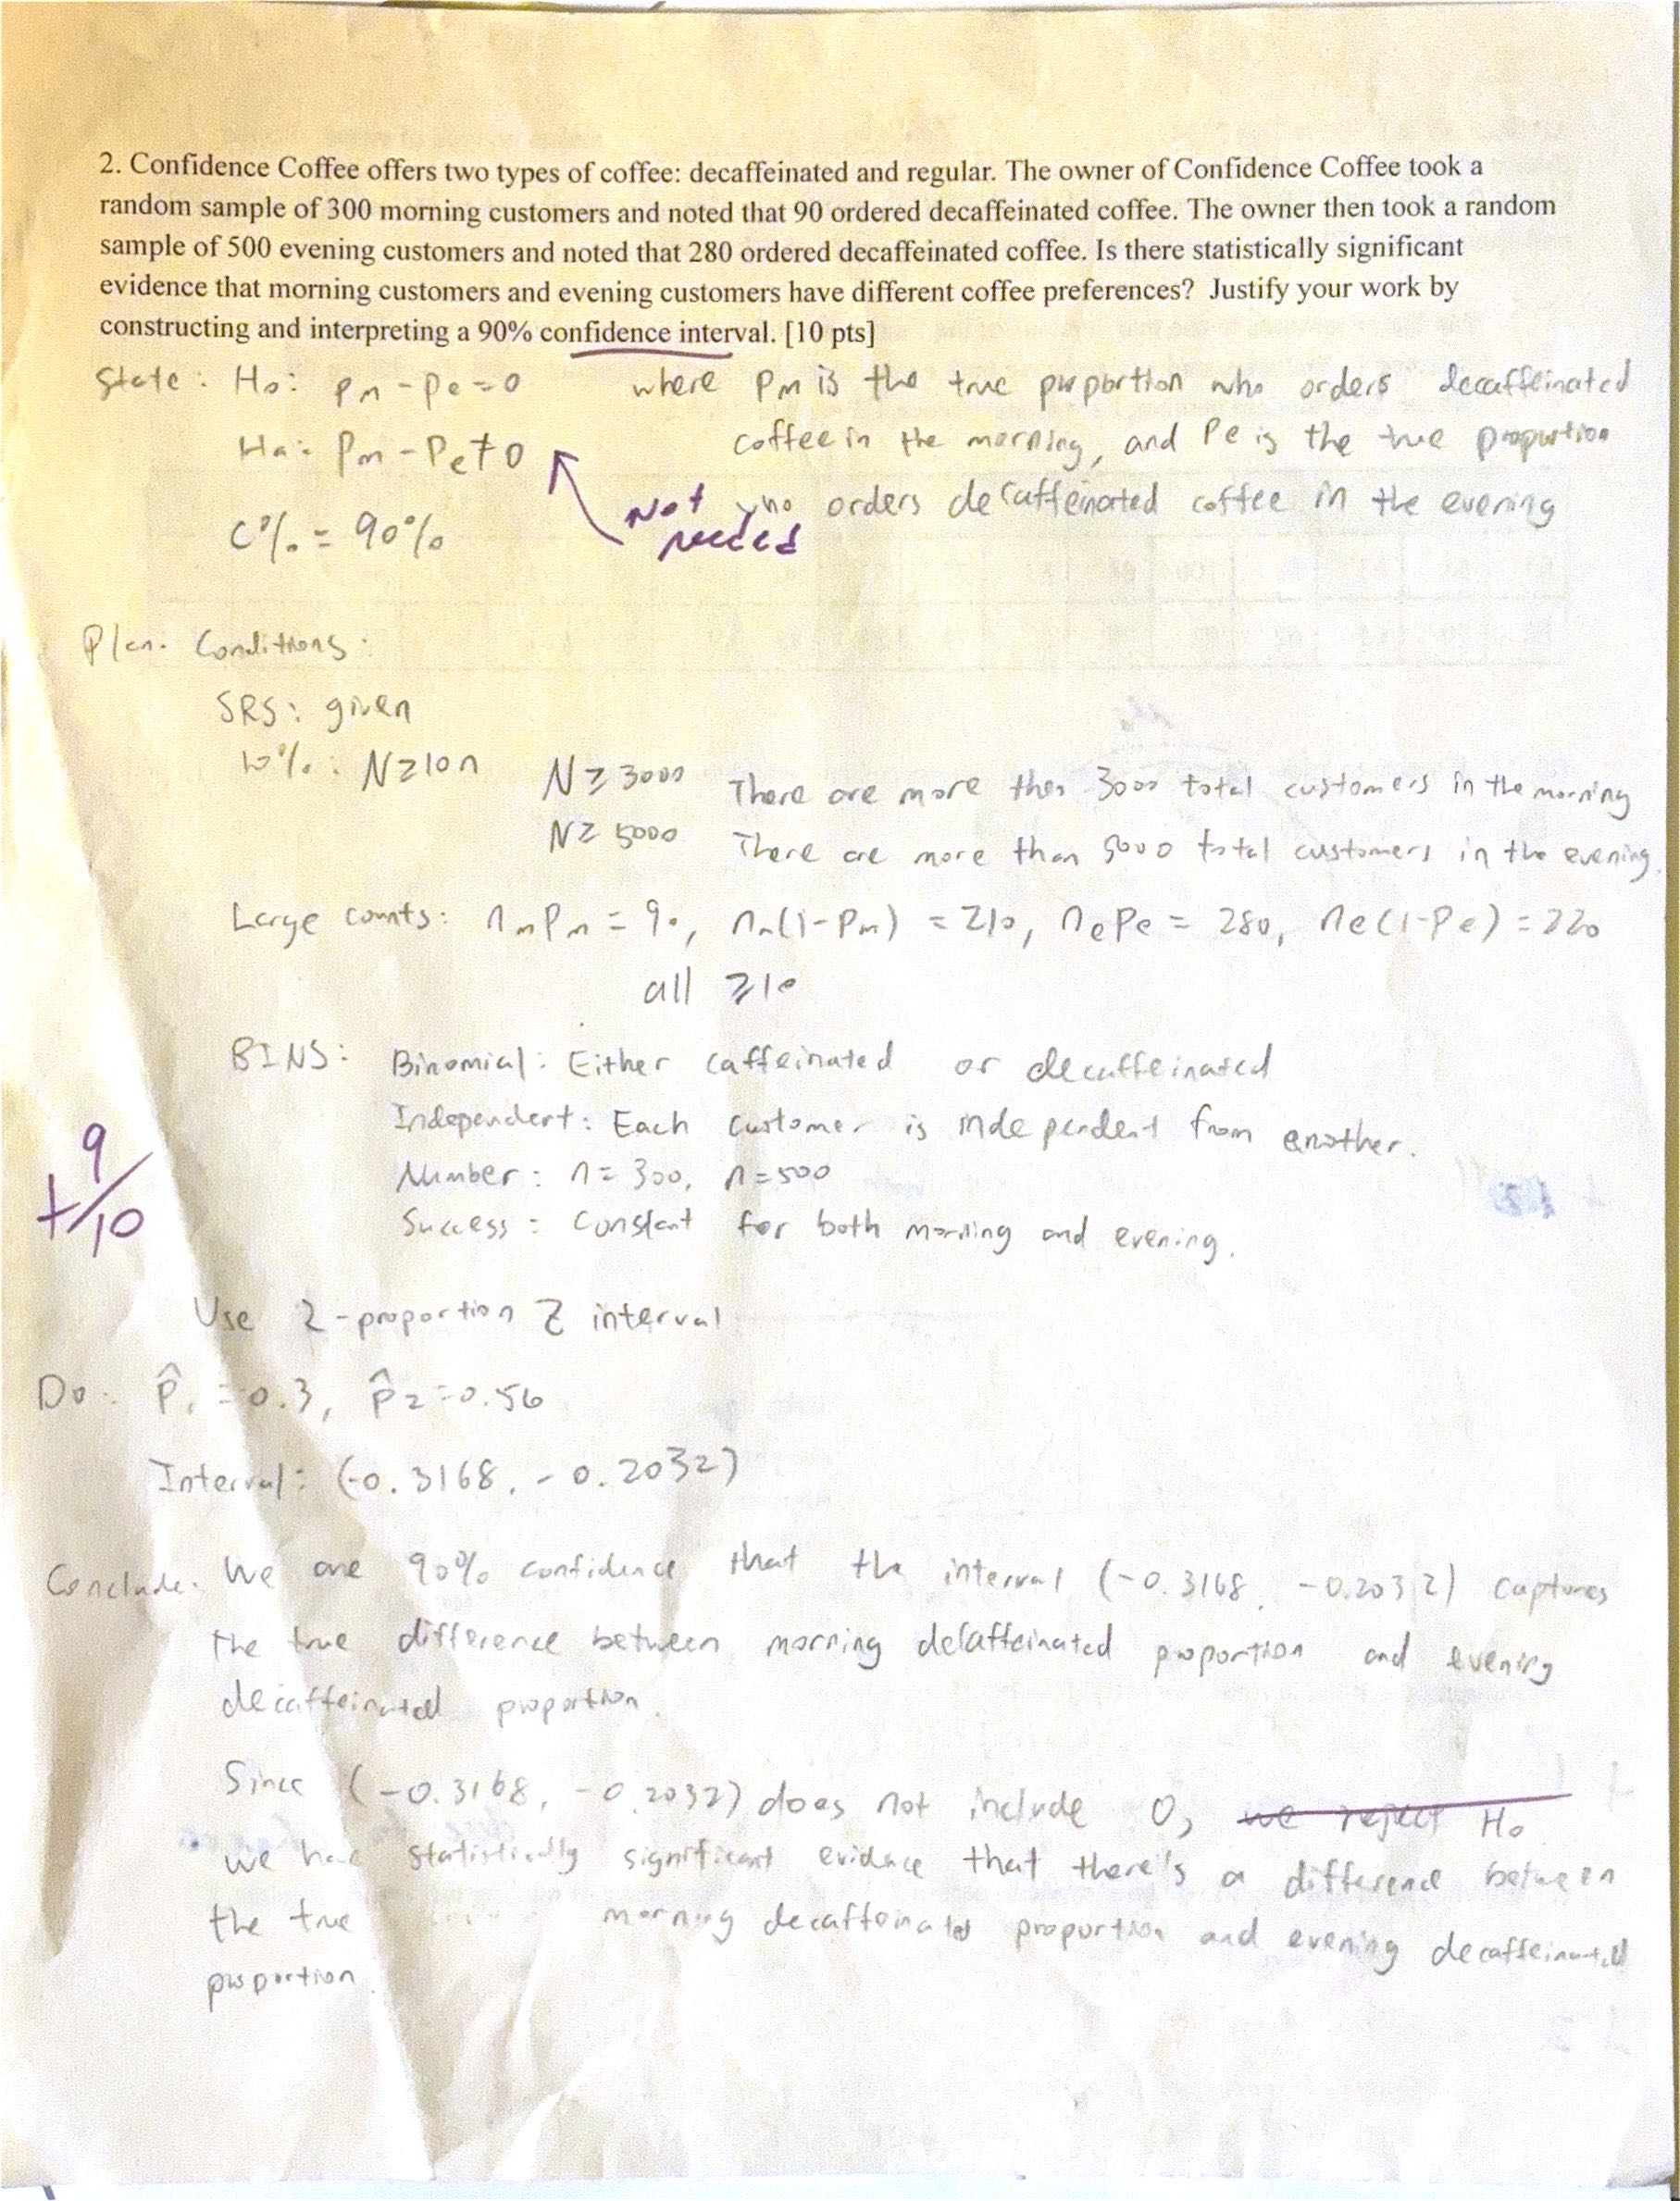 2. Confidence Coffee offers two types of coffee: decaffeinated and regular. The owner of Confidence Coffee took a
random sample of 300 morning customers and noted that 90 ordered decaffeinated coffee. The owner then took a random
sample of 500 evening customers and noted that 280 ordered decaffeinated coffee. Is there statistically significant
evidence that morning customers and evening customers have different coffee preferences? Justify your work by
constructing and interpreting a 90% confidence interval. [10 pts]
State: H₀: pₘ - pₑ = 0 where pₘ is the true proportion who orders decaffeinated
coffee in the morning, and Pe is the true proportion
Hₐ: pₘ - pₑ ≠ 0
Not needed
who orders decaffeinated coffee in the evening
C% = 90%
Plan. Conditions:
SRS: given
10%: N≥10n N ≥ 3000 There are more than 3000 total customers in the morning
N ≥ 5000 There are more than 5000 total customers in the evening.
Large counts: nₘpₘ = 90, nₘ(1-pₘ) = 210, nₑpₑ = 280, nₑ(1-pₑ) = 220
all ≥10
BINS: Binomial: Either caffeinated or decaffeinated
Independent: Each customer is independent from another.
9
+/10
Number: n = 300, n=500
Success: Constant for both morning and evening.
Use 2-proportion Z interval
Do: p̂₁ = 0.3, p̂₂ = 0.56
Interval: (-0.3168, -0.2032)
Conclude. We are 90% confidence that the interval (-0.3168, -0.2032) captures
the true difference between morning decaffeinated proportion and evening
decaffeinated proportion.
Since (-0.3168, -0.2032) does not include 0, we reject H₀
we have statistically significant evidence that there's a difference between
the true morning decaffeinated proportion and evening decaffeinated
proportion.